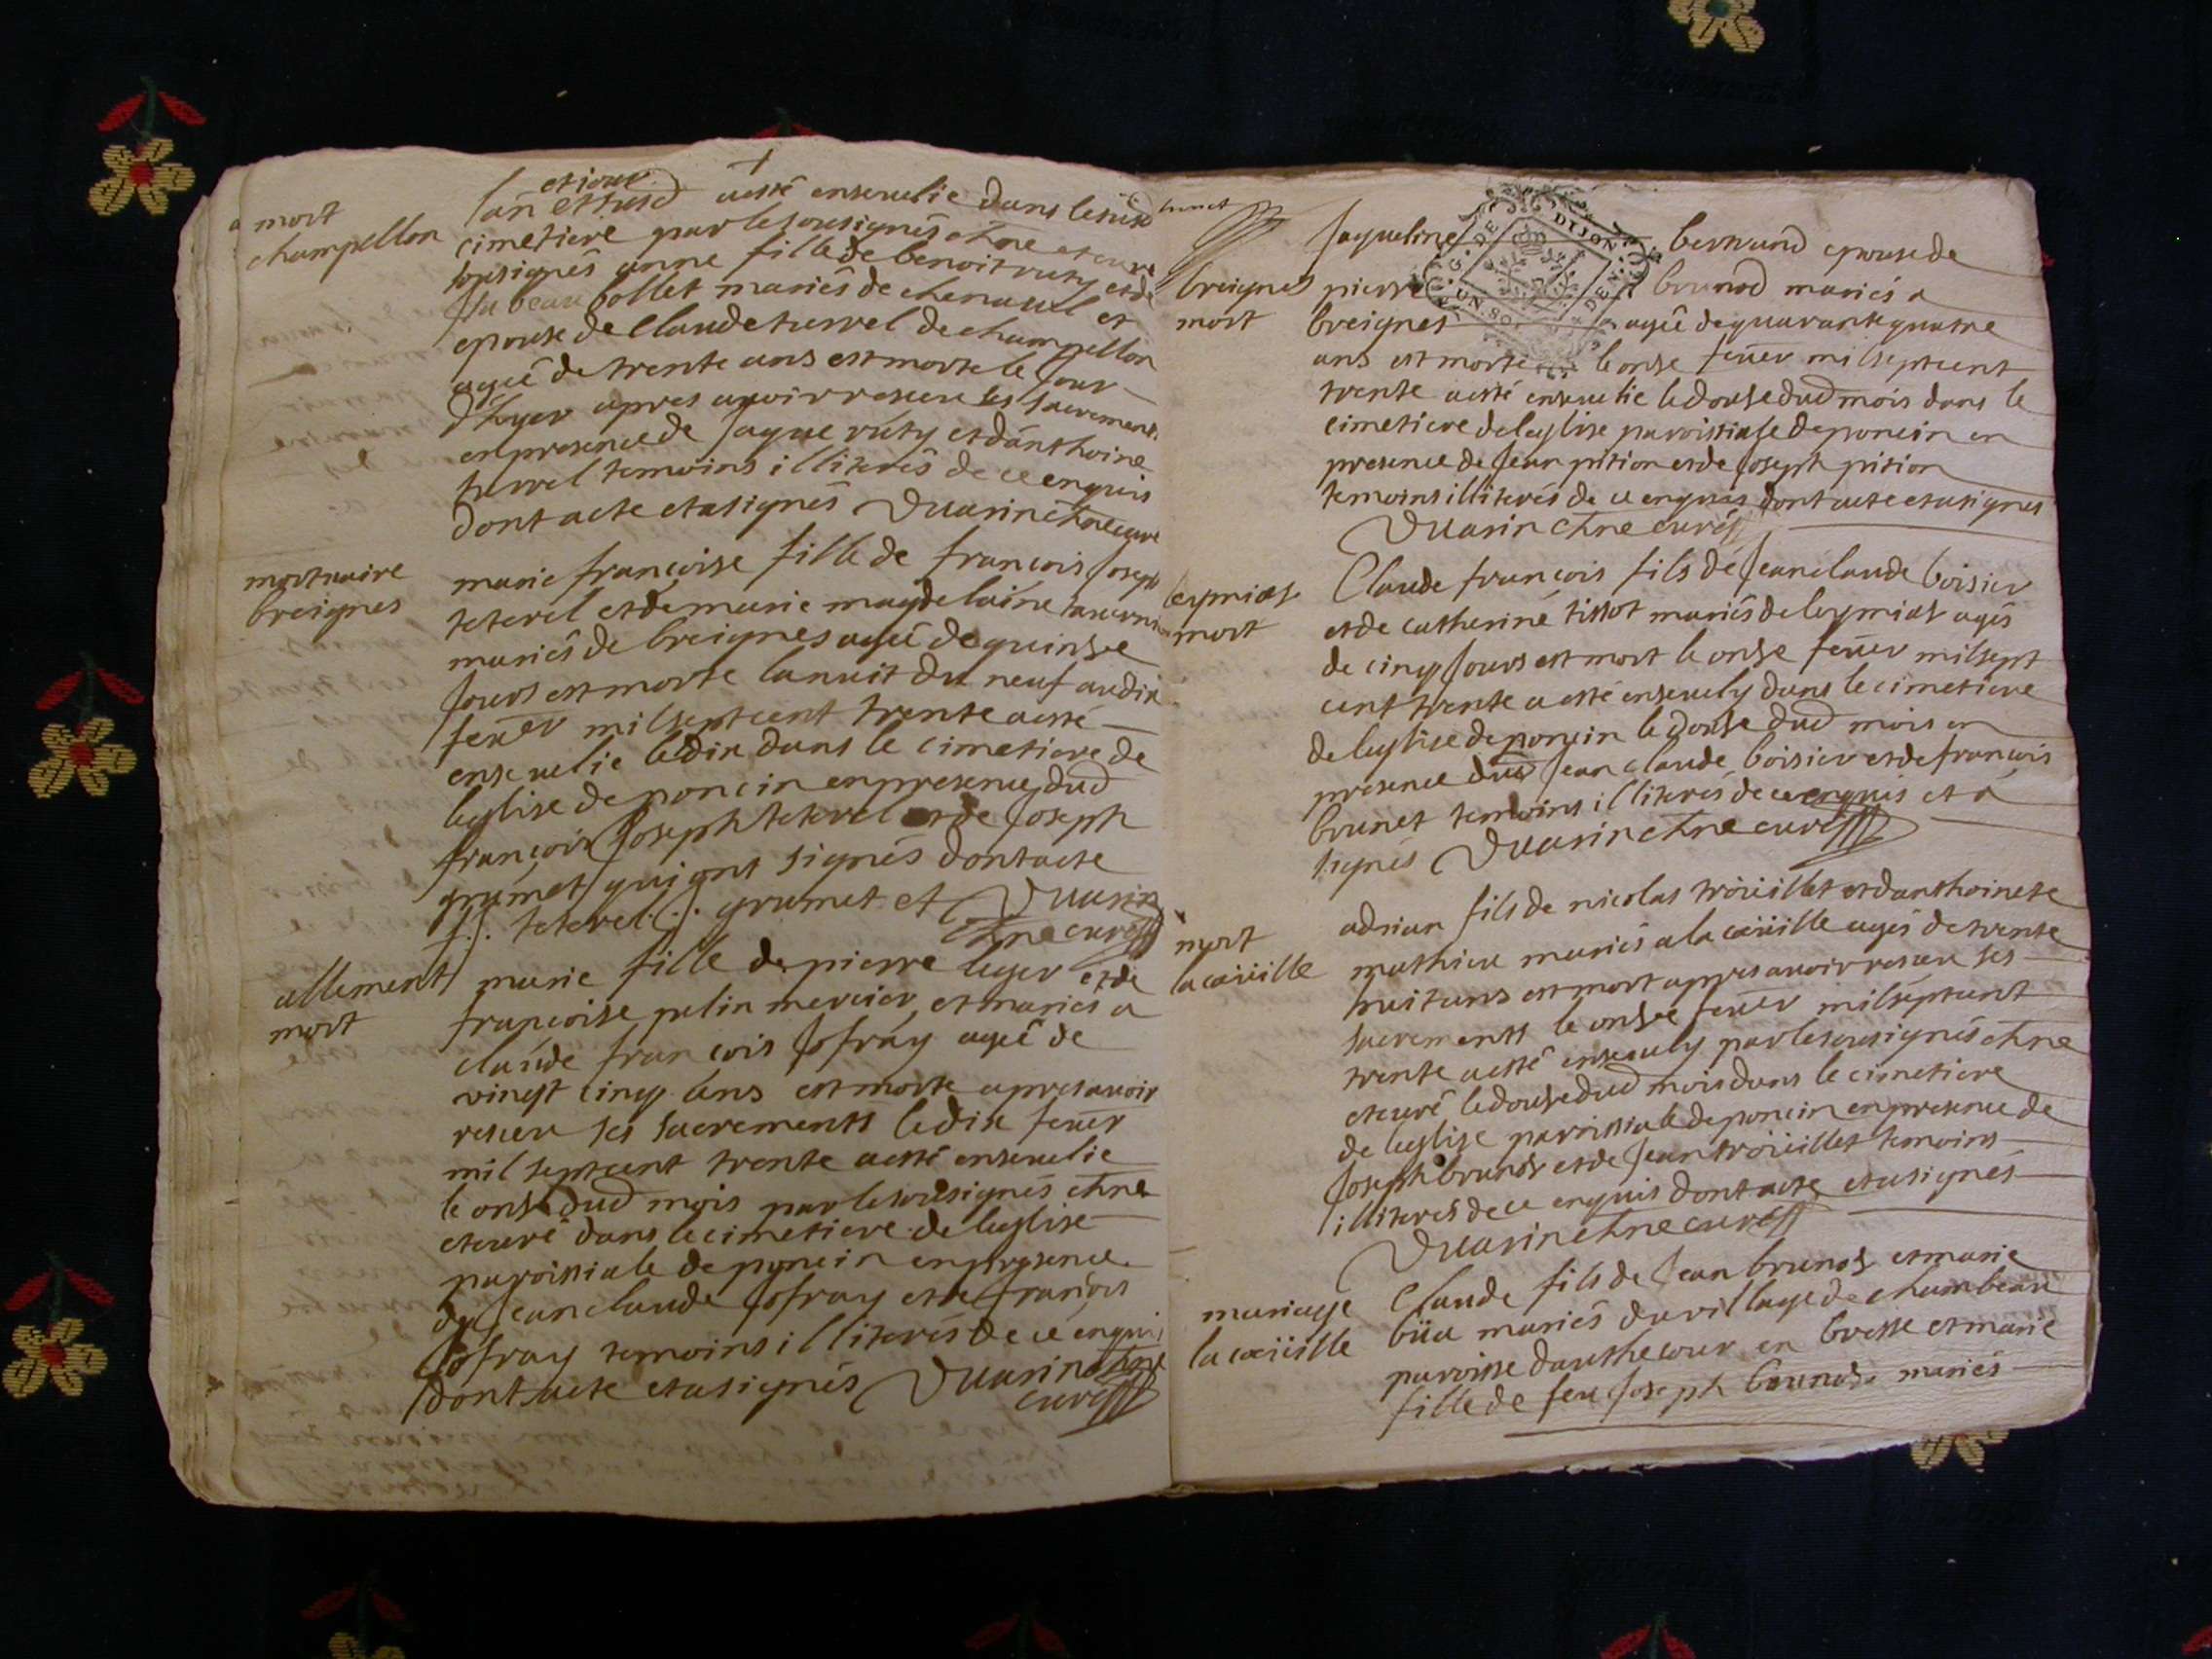 mort
champellon
et jour
lan et susd a esté enseuelie dans le susd
cimetiere par le sousignés chne et curé
sousignés anne fille de benoit ruty et de
beau bollet mariés de chenauel et
epouse de Claude turrel de champellon
agée de trente ans est morte le jour
d'hyer apres avoir reseu ses sacrements
en presence de Jaque ruty et d'anthoine
turrel temoins illiterés de ce enquis
dont acte et a signés Duarin chne curé
mortuaire
breignes
marie françoise fille de francois Joseph
teterel et de marie magdelaine
mariés de breignes agée de quinse
Jours est morte la nuit du neuf au dix
feuer mil sept cent trente a esté
enseuelie le dix dans le cimetiere de
leglise de poncin en presence dud
françois Joseph teterel et de Joseph
grumet qui ont signés dont acte
f. j. teterel j. grumet et Duarin
chne curé
allement
mort
marie fille de pierre leger et de
francoise pelin mercier et mariés a
claude francois Jofray agée de
vingt cinq ans est morte apres avoir
reseu ses sacrements le dix feuer
mil sept cent trente a esté enseuelie
le onse dud mois par le sousignés chne
et curé dans le cimetiere de leglise
paroissiale de poncin en presence
de Jean claude Jofray et de francois
Jofray temoins illiterés de ce enquis
dont acte et a signés Duarin chne
curé
breignes
mort
Jaqueline bernand epouse de
pierre brunod mariés a
breignes agée de quarante quatre
ans est morte le onse feuer mil sept cent
trente a esté enseuelie le douse dud mois dans le
cimetiere de leglise paroissiale de poncin en
presence de Jean pition et de Joseph pition
temoins illiterés de ce enquis dont acte et a signés
Duarin chne curé
G. DE DIJON
UN SOL
leymiat
mort
Claude françois fils de Jean claude boisier
et de catherine tissot mariés de leymiat agés
de cinq Jours est mort le onse feuer mil sept
cent trente a esté enseuely dans le cimetiere
de leglise de poncin le douse dud mois en
presence dud Jean claude boisier et de francois
brunet temoins illiterés de ce enquis et a
signés Duarin chne curé
mort
la cöüille
adrian fils de nicolas tröüillet et danthoinete
mathieu mariés a la cöüille agés de trente
huit ans est mort appres avoir reseu ses
sacrements le onse feuer mil sept cent
trente a esté enseuely par le sousignés chne
et curé le douse dud mois dans le cimetiere
de leglise paroissiale de poncin en presence de
Joseph brunod et de Jean tröüillet temoins
illiterés de ce enquis dont acte et a signés
Duarin chne curé
mariage
la cöüille
Claude fils de Jean brunod et marie
büa mariés du village de chambeau
paroisse dauthecour en bresse et marie
fille de feu Joseph brunod mariés